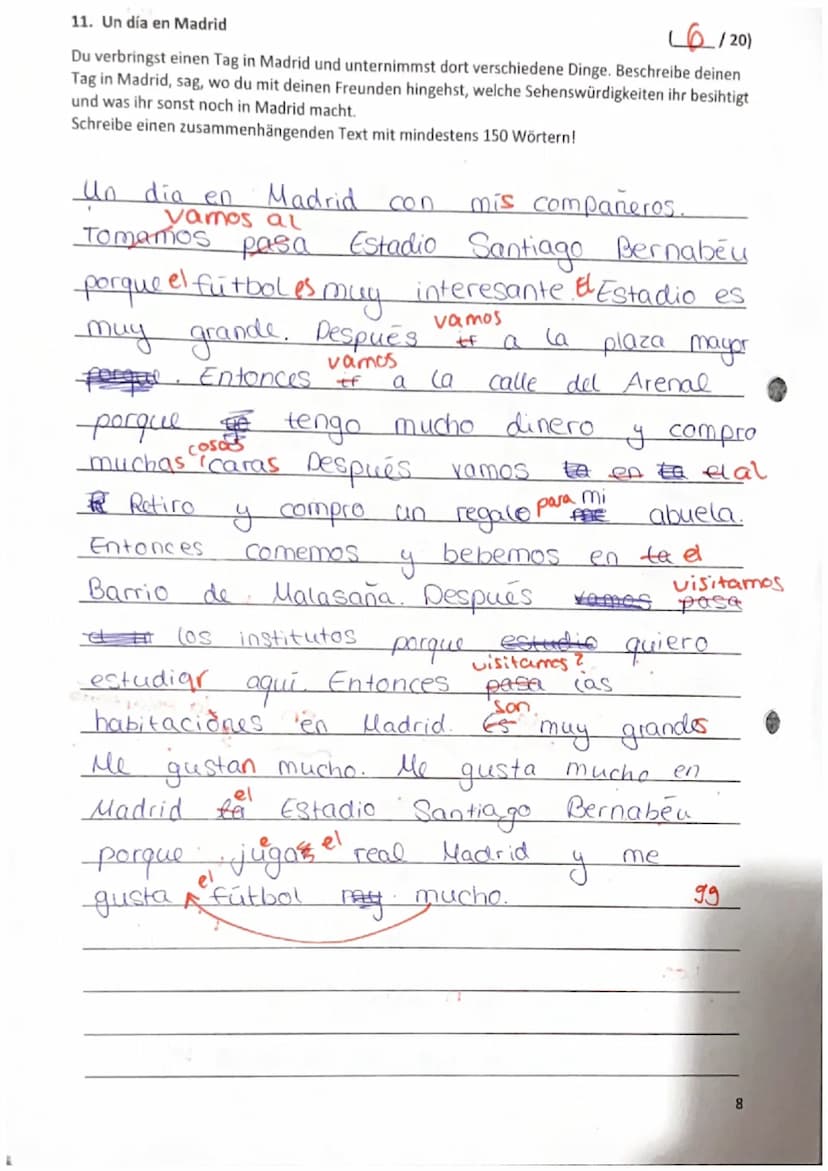 11. Un día en Madrid
(6/20)
Du verbringst einen Tag in Madrid und unternimmst dort verschiedene Dinge. Beschreibe deinen
Tag in Madrid, sag, wo du mit deinen Freunden hingehst, welche Sehenswürdigkeiten ihr besihtigt
und was ihr sonst noch in Madrid macht.
Schreibe einen zusammenhängenden Text mit mindestens 150 Wörtern!
Un día en Madrid con mis compañeros.
vamos al
Tomamos pasa Estadio Santiago Bernabéu
porque el fútbol es muy interesante. El Estadio es
muy grande. Después vamos a la plaza mayor
. Entonces vamos a la calle del Arenal
porque tengo mucho dinero y compro
cosas
muchas caras Después vamos en el al
Retiro y compro un regalo para mi abuela.
Entonces comemos y bebemos en la el
Barrio de Malasaña. Después vamos pasa visitamos
los institutos porque estudio quiero
visitamos?
estudiar aquí. Entonces pasa las
son
habitaciones en Madrid. Es muy grandes
Me gustan mucho. Me gusta mucho en
Madrid el Estadio Santiago Bernabéu
porque juega el real Madrid y me
gusta el fútbol mucho.
99
8